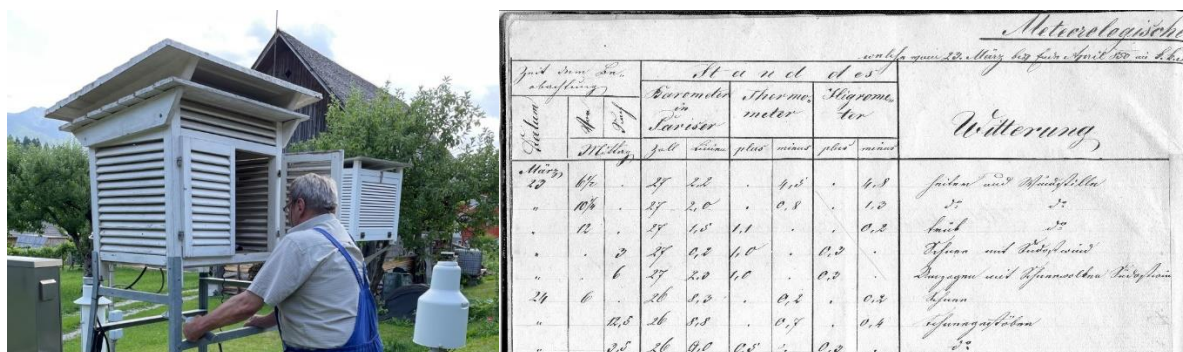 Meteorologische
welche vom 23. März bis Ende April
Zeit dem Be-
obachtung
Stand des
Datum
Vor
Nach
Mittag
Barometer
in
Pariser
Thermo-
meter
Higrome-
ter
Witterung
Zoll Linien plus minus plus minus
März
23 6½ . 27 2,2 . 4,5 . 4,8 heiter und Windstille
" 10¼ . 27 2,0 . 0,8 . 1,3 do do
" 12 . 27 1,5 1,1 . . 0,2 trüb do
" . 3 27 0,2 1,0 . 0,3 . Schnee mit Südostwind
" . 6 27 2,3 1,0 . 0,3 . mit Schneewolken Südostwin
24 6 . 26 8,3 . 0,2 . 0,2 Schnee
" 12,5 26 8,8 . 0,7 . 0,4 Schneegestöber
" 3,5 26 9,0 0,5 . 0,3 . do